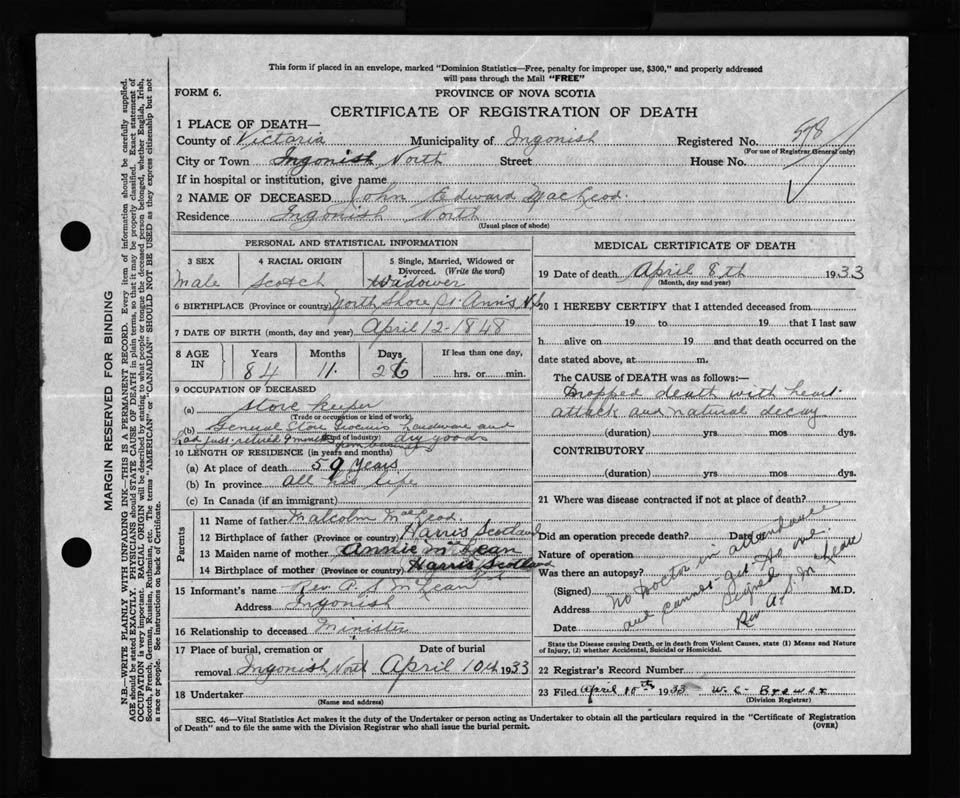 This form if placed in an envelope, marked "Dominion Statistics—Free, penalty for improper use, $300," and properly addressed
will pass through the Mail "FREE"
FORM 6.
PROVINCE OF NOVA SCOTIA
CERTIFICATE OF REGISTRATION OF DEATH
1 PLACE OF DEATH—
County of Victoria Municipality of Ingonish Registered No. 598
(For use of Registrar General only)
City or Town Ingonish North Street House No.
If in hospital or institution, give name
2 NAME OF DECEASED John Edward MacLeod.
Residence Ingonish North
(Usual place of abode)
PERSONAL AND STATISTICAL INFORMATION
3 SEX 4 RACIAL ORIGIN 5 Single, Married, Widowed or
Divorced. (Write the word)
Male Scotch Widower
6 BIRTHPLACE (Province or country) North Shore St. Annis N.S.
7 DATE OF BIRTH (month, day and year) April 12-1848
8 AGE IN Years Months Days If less than one day,
84 11. 26 hrs. or min.
9 OCCUPATION OF DECEASED
(a) store keeper
(Trade or occupation or kind of work)
(b) General Store Groceries hardware and
had just retired 9 months from business dry goods
(Kind of industry)
10 LENGTH OF RESIDENCE (in years and months)
(a) At place of death 59 years
(b) In province all his life
(c) In Canada (if an immigrant)
Parents
11 Name of father Malcolm MacLeod.
12 Birthplace of father (Province or country) Harris Scotland
13 Maiden name of mother Annie McLean
14 Birthplace of mother (Province or country) Harris Scotland
15 Informant's name Rev. A. D. McLean
Address Ingonish
16 Relationship to deceased Minister
17 Place of burial, cremation or Date of burial
removal Ingonish North April 10th 1933
18 Undertaker
(Name and address)
MEDICAL CERTIFICATE OF DEATH
19 Date of death April 8th 1933
(Month, day and year)
20 I HEREBY CERTIFY that I attended deceased from
19 to 19 that I last saw
h alive on 19 and that death occurred on the
date stated above, at m.
The CAUSE OF DEATH was as follows:—
Dropped death with heart
attack and natural decay
(duration) yrs. mos dys.
CONTRIBUTORY
(duration) yrs. mos. dys.
21 Where was disease contracted if not at place of death?
Did an operation precede death? Date of
Nature of operation
Was there an autopsy?
(Signed) M.D.
Address
Date
No Doctor in attendance
and cannot get to one
Signed
Rev. A. D. McLean
State the Disease causing Death, or in death from Violent Causes, state (1) Means and Nature
of Injury, (2) whether Accidental, Suicidal or Homicidal.
22 Registrar's Record Number
23 Filed April 10th 1933 W. C. Brewer
(Division Registrar)
SEC. 46—Vital Statistics Act makes it the duty of the Undertaker or person acting as Undertaker to obtain all the particulars required in the "Certificate of Registration
of Death" and to file the same with the Division Registrar who shall issue the burial permit.
(OVER)
MARGIN RESERVED FOR BINDING
N.B.—WRITE PLAINLY WITH UNFADING INK—THIS IS A PERMANENT RECORD. Every item of information should be carefully supplied.
AGE should be stated EXACTLY. PHYSICIANS should STATE CAUSE OF DEATH in plain terms, so that it may be properly classified. Exact statement of
OCCUPATION is very important. RACIAL ORIGIN will be described by stating to what people or tongue the deceased person belonged, whether English, Irish,
Scotch, French, German, Russian, Ruthenian, etc. The terms "AMERICAN" or "CANADIAN" SHOULD NOT BE USED as they express citizenship but not
a race or people. See instructions on back of Certificate.